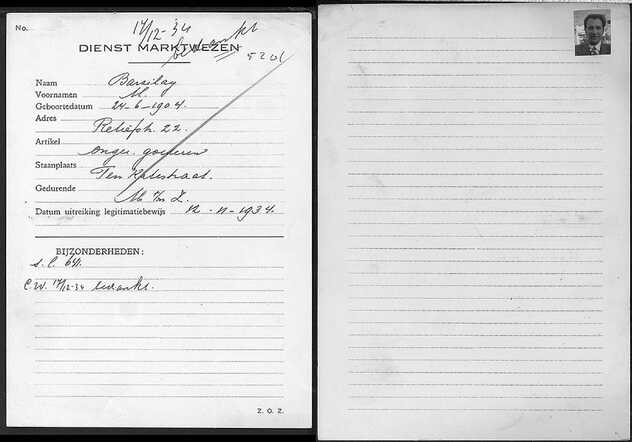 No.
17/12-34 bedankt
DIENST MARKTWEZEN
5201
Naam Barsilay
Voornamen M.
Geboortedatum 24-6-1904.
Adres
Retiefstr. 22.
Artikel
onger. goederen
Staanplaats
Ten Katestraat.
Gedurende
M t/m Z.
Datum uitreiking legitimatiebewijs 12-11-1934.
BIJZONDERHEDEN:
s.l. 641.
C.W. 17/12-34 bedankt.
Z.O.Z.